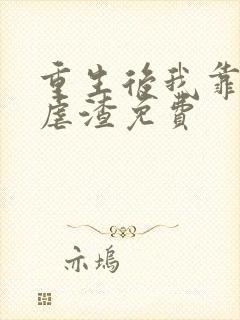 重生後我靠
虐渣免費
亦塢